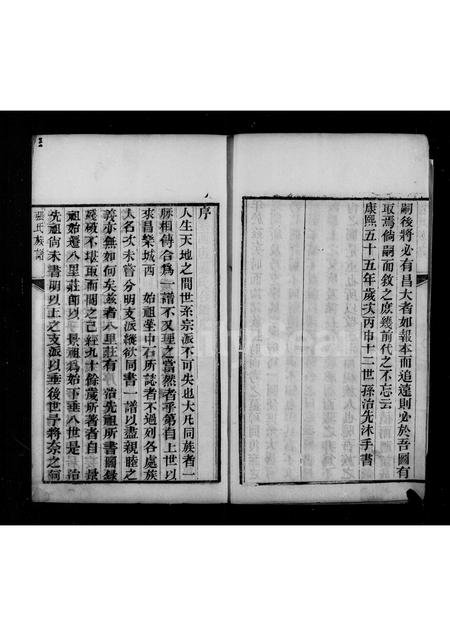 嗣後將必有昌大者如報本而追遠則必於吾圖有
取焉倘嗣而敘之庶幾前代之不忘云
康熙五十五年歲次丙申十二世孫治先沐手書
序
人生天地之間世系宗派不可失也大凡同族者一
脉相傳合為一譜不又理之當然者乎第自上世以
來昌樂城西 始祖塋中石所誌者不過列各處族
人名次未嘗分明支派縱欲同書一譜以盡親睦之
義亦無如何矣茲者八里莊有 治先祖所書圖錄
殘破不堪取而閱之己經九十餘歲所著者自 景
祖始遷八里莊即以 景祖為始下垂八世是 治
先祖尚未書明以上之支派以垂後世乎將奈之何
張氏族譜